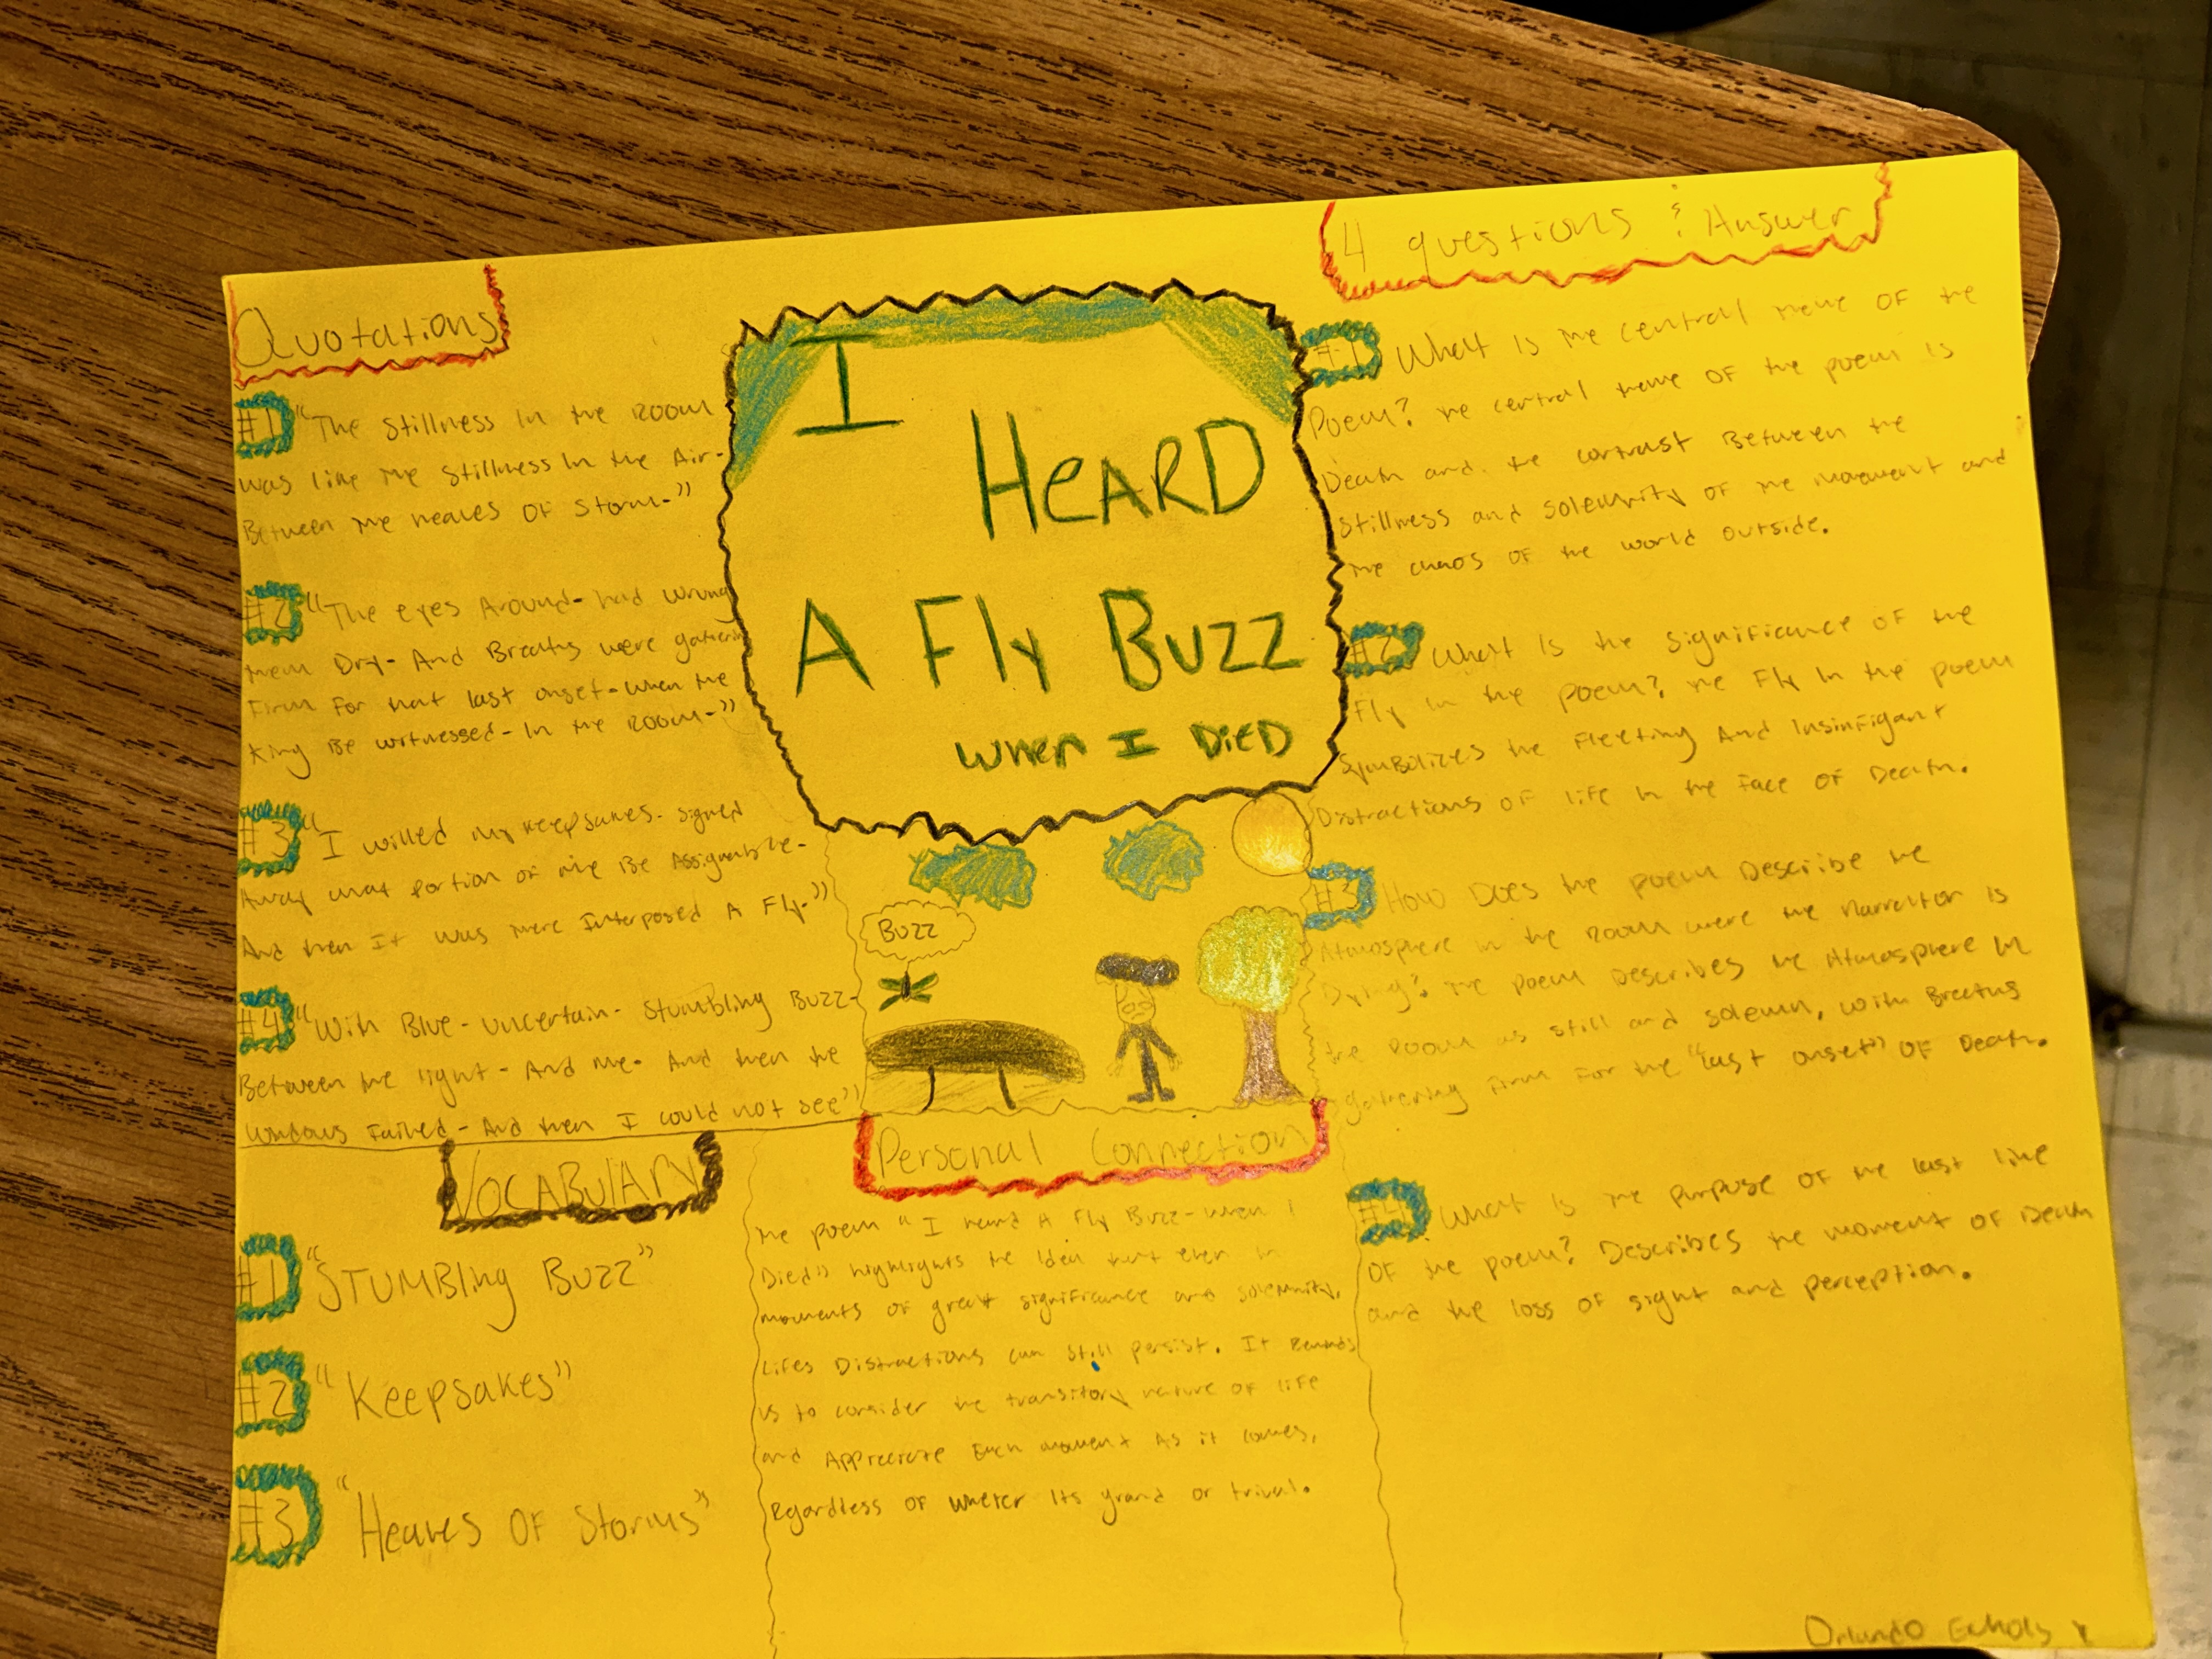 Quotations
#1 "The Stillness In the Room
was like the Stillness In the Air-
Between the Heaves OF Storm-"
#2 "The eyes Around- had wrung
them Dry- And Breaths were gatherin
Firm For that last onset- when the
King Be witnessed- In the Room-"
#3 "I willed my keepsakes- signed
Away what portion of me Be Assignable-
And then It was there Interposed A Fly-"
#4 "With Blue- uncertain- Stumbling Buzz-
Between the light- And me- And then the
windows Failed- And then I could not see"
VOCABULARY
#1 "STUMBling Buzz"
#2 "Keepsakes"
#3 "Heaves OF Storms"
I
HeARD
A Fly Buzz
when I DiED
Buzz
Personal Connection
The poem "I heard A Fly Buzz- when I
Died" highlights the Idea that even in
moments of great significance and solemnity,
Lifes Distractions can still persist. It Reminds
us to consider the transitory nature of life
and Appreciate Each moment As it comes,
Regardless OF wheter Its grand or trival.
4 questions & Answer
#1 What Is the central theme OF the
Poem? The central theme OF the poem is
Death and the contrast Between the
Stillness and solemnity of the moement and
the chaos of the world outside.
#2 What Is the significance of the
Fly in the poem? The Fly In the poem
Symbolizes the Fleeting And Insinfigant
Distractions of life in the face of Death.
#3 How Does the poem Describe the
Atmosphere in the Room were the Narrator is
Dying? The poem Describes the Atmosphere in
the Room as still and solemn, with Breaths
gathering Firm For the "last onset" OF Death.
#4 What is the purpose of the last line
OF the poem? Describes the moment of Death
and the loss of sight and perception.
Orlando Echols